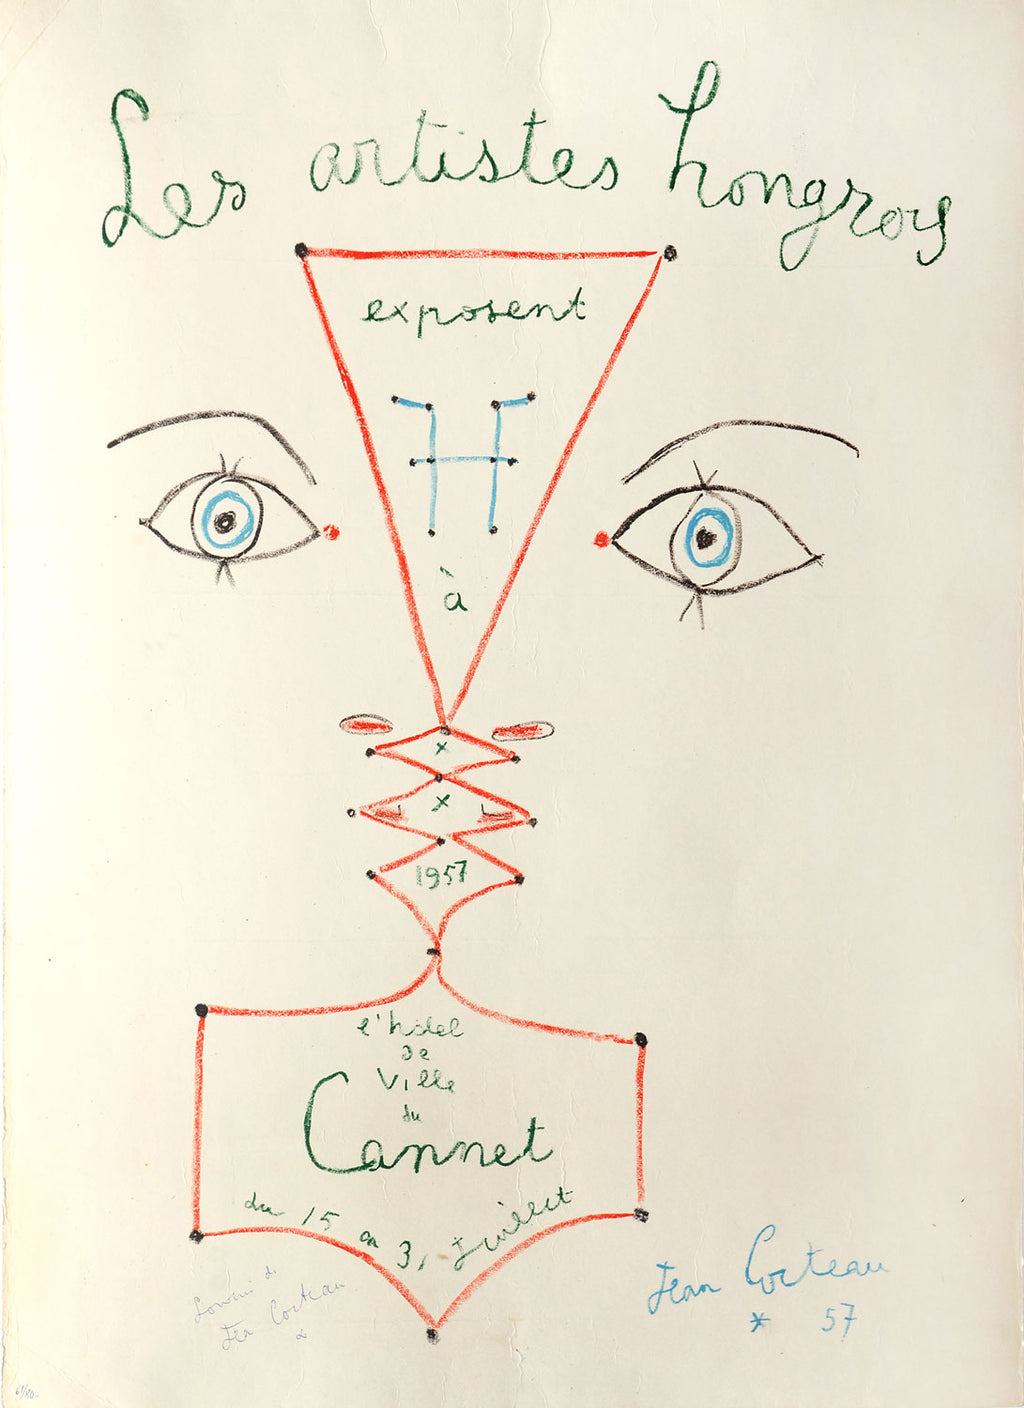 Les artistes hongrois
exposent
H
à
x
x
1957
l'hôtel
de
Ville
du
Cannet
du 15 au 31 Juillet
Souvenir de
Jean Cocteau
Jean Cocteau
* 57